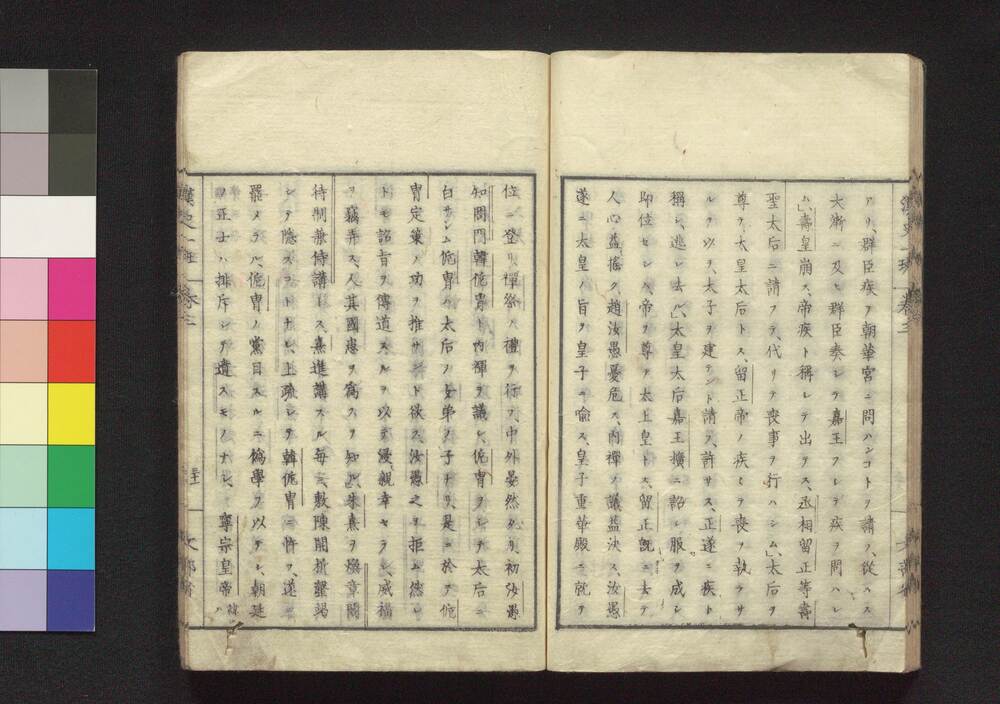 アリ、群臣疾ヲ朝華宮ニ問ハンコトヲ請フ、從ハス
大漸ニ及ヒ群臣奏シテ嘉王ヲシテ疾ヲ問ハシ
ム、壽皇崩ス、帝疾ト稱シテ出テス、丞相留正等壽
聖太后ニ請フテ、代リテ喪事ヲ行ハシム、太后ヲ
尊テ、太皇太后トス、留正帝ノ疾ミテ喪ヲ執ラサ
ルヲ以テ、太子ヲ建テント請フ、許サス、正遂ニ疾ト
稱シ、逃レ去ル、太皇太后嘉王擴ニ詔シ服ヲ成シ
即位セシム、帝ヲ尊テ太上皇トス、留正既ニ去テ
人心益搖ク、趙汝愚憂危ス、內禪ノ議益決ス、汝愚
遂ニ太皇ノ旨ヲ皇子ニ喩ス、皇子重華殿ニ就テ
位ニ登リ禫祭ノ禮ヲ行フ、中外晏然タリ、初汝愚
知閤門韓侂冑ト內禪ヲ議シ、侂冑ヲシテ太后ニ
白サシム、侂冑ハ太后ノ女弟ノ子ナリ、是ニ於テ侂
冑定策ノ功ヲ推サント欲ス、汝愚之ヲ拒ム、然レ
トモ詔旨ヲ傳道スルヲ以テ浸親幸セラレ、威福
ヲ竊弄ス、人其國患ヲ爲スヲ知ル、朱熹ヲ煥章閣
待制兼侍講トス、熹進講スル每ニ、敷陳開析罄竭
シテ隱ス所ナシ、上疏シテ韓侂冑ニ忤ヒ、遂ニ
罷メラル、侂冑ノ黨目スルニ僞學ヲ以テシ、朝廷
ノ正士ハ排斥シテ遺スモノナシ、寧宗皇帝ハ
漢史一班 卷三
文部省